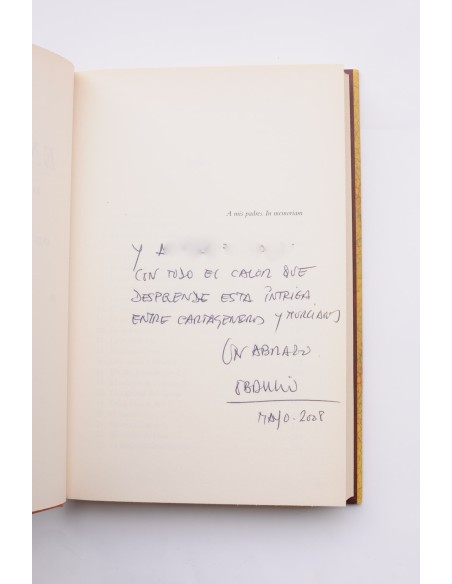 A mis padres. In memoriam
Y A
CON TODO EL CALOR QUE
DESPRENDE ESTA INTRIGA
ENTRE CARTAGENEROS Y MURCIANOS
UN ABRAZO
MAYO-2008